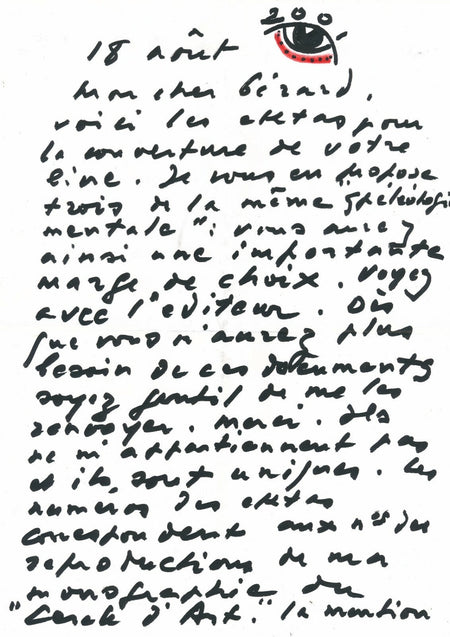 2001
18 août
mon cher Gérard,
voici les ektas pour
la couverture de votre
livre. Je vous en propose
trois de la même "spéléologie
mentale": vous aurez
ainsi une importante
marge de choix. Voyez
avec l'éditeur. Dès
que vous n'aurez plus
besoin de ces documents
soyez gentil de me les
renvoyer. Merci. Ils
ne m'appartiennent pas
et ils sont uniques. Les
numéros des ektas
correspondent aux nos des
reproductions de ma
monographie du
"Cercle d'Art". La mention